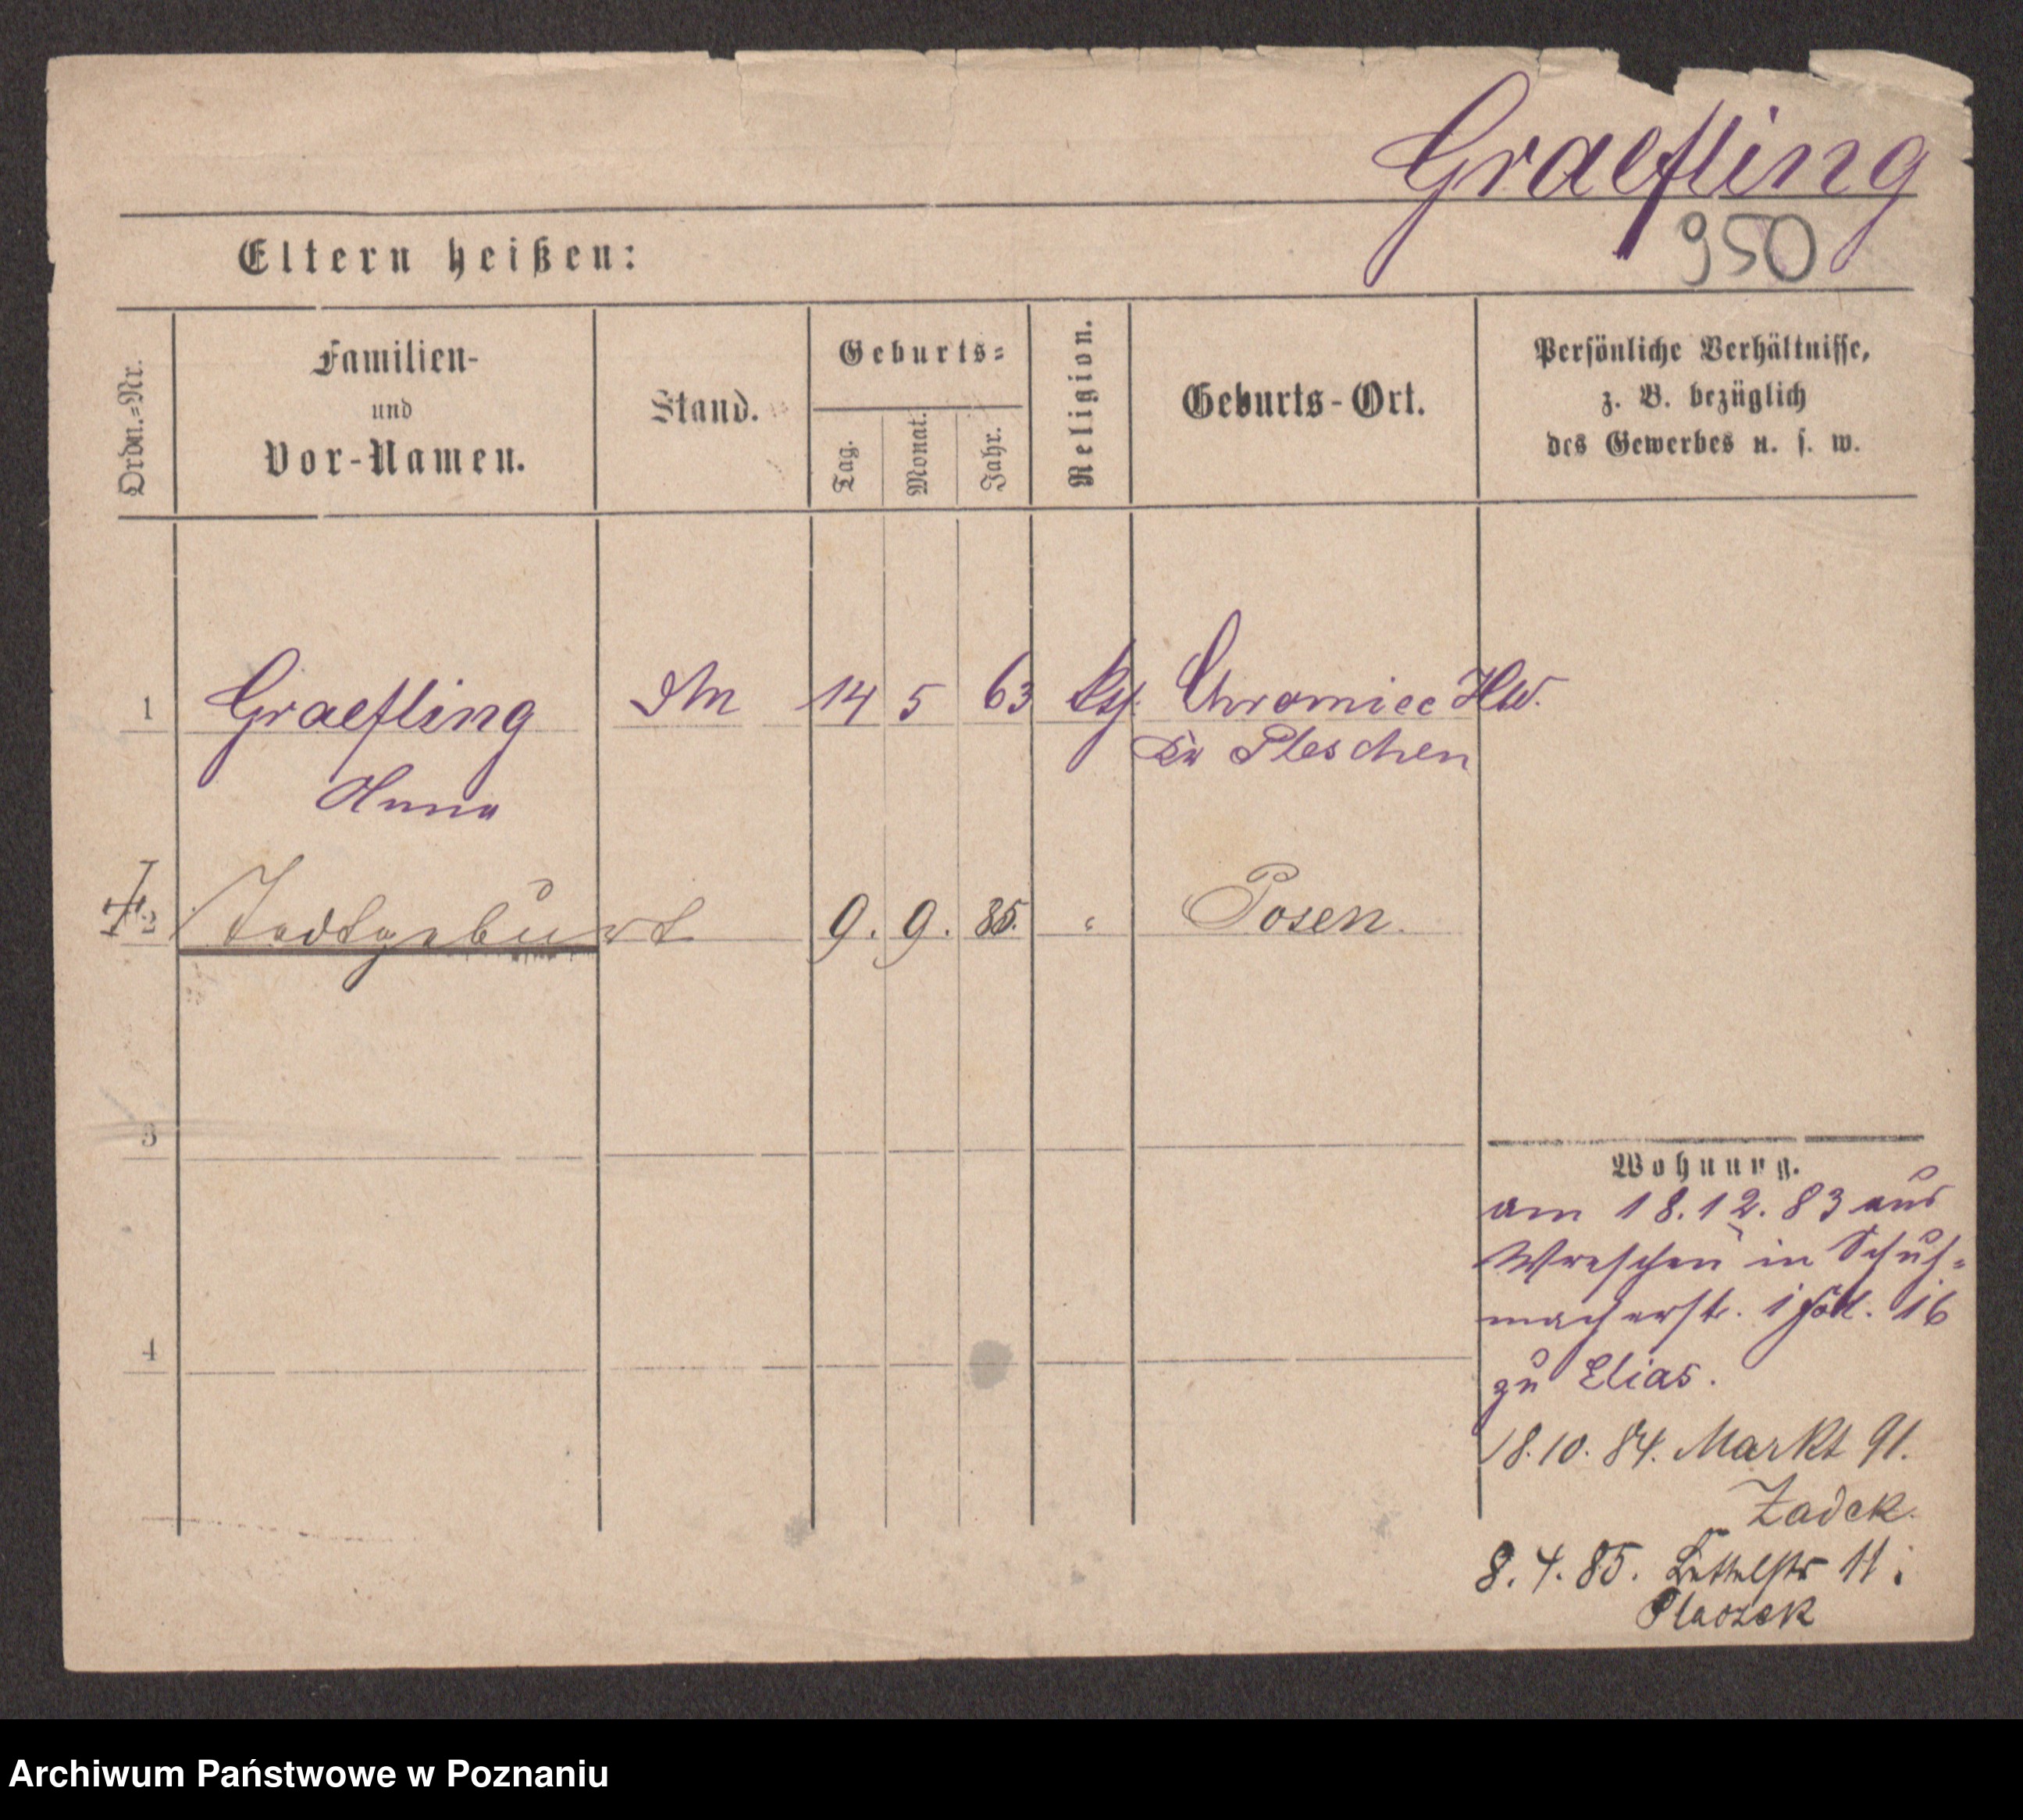 Graefling
950
Eltern heißen:
Ordn.=Nr.
Familien-
und
Vor-Namen.
Stand.
Geburts=
Tag.
Monat.
Jahr.
Religion.
Geburts-Ort.
Persönliche Verhältnisse,
z. B. bezüglich
des Gewerbes u. s. w.
1 Graefling 14 5 63 Chromiec
Pleschen
Anna
2 Todtgeburt 9. 9. 85. " Posen.
3
Wohnung.
am 18.12.83 aus
Wreschen in Schuh=
macherstr. 16
zu Elias.
4
18.10.84. Markt 91.
Zadek.
8.4.85. 11
Placzek
Archiwum Państwowe w Poznaniu